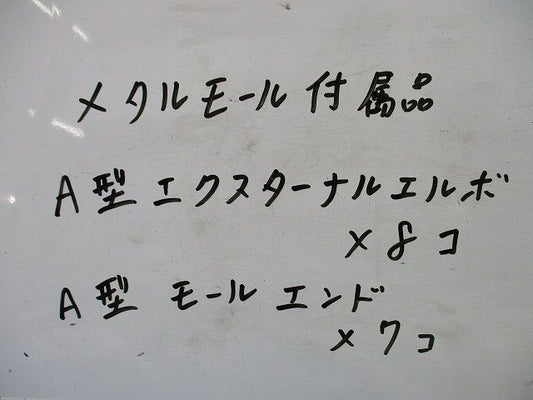 メタルモール付属品
A型エクスターナルエルボ
×8コ
A型 モールエンド
×7コ